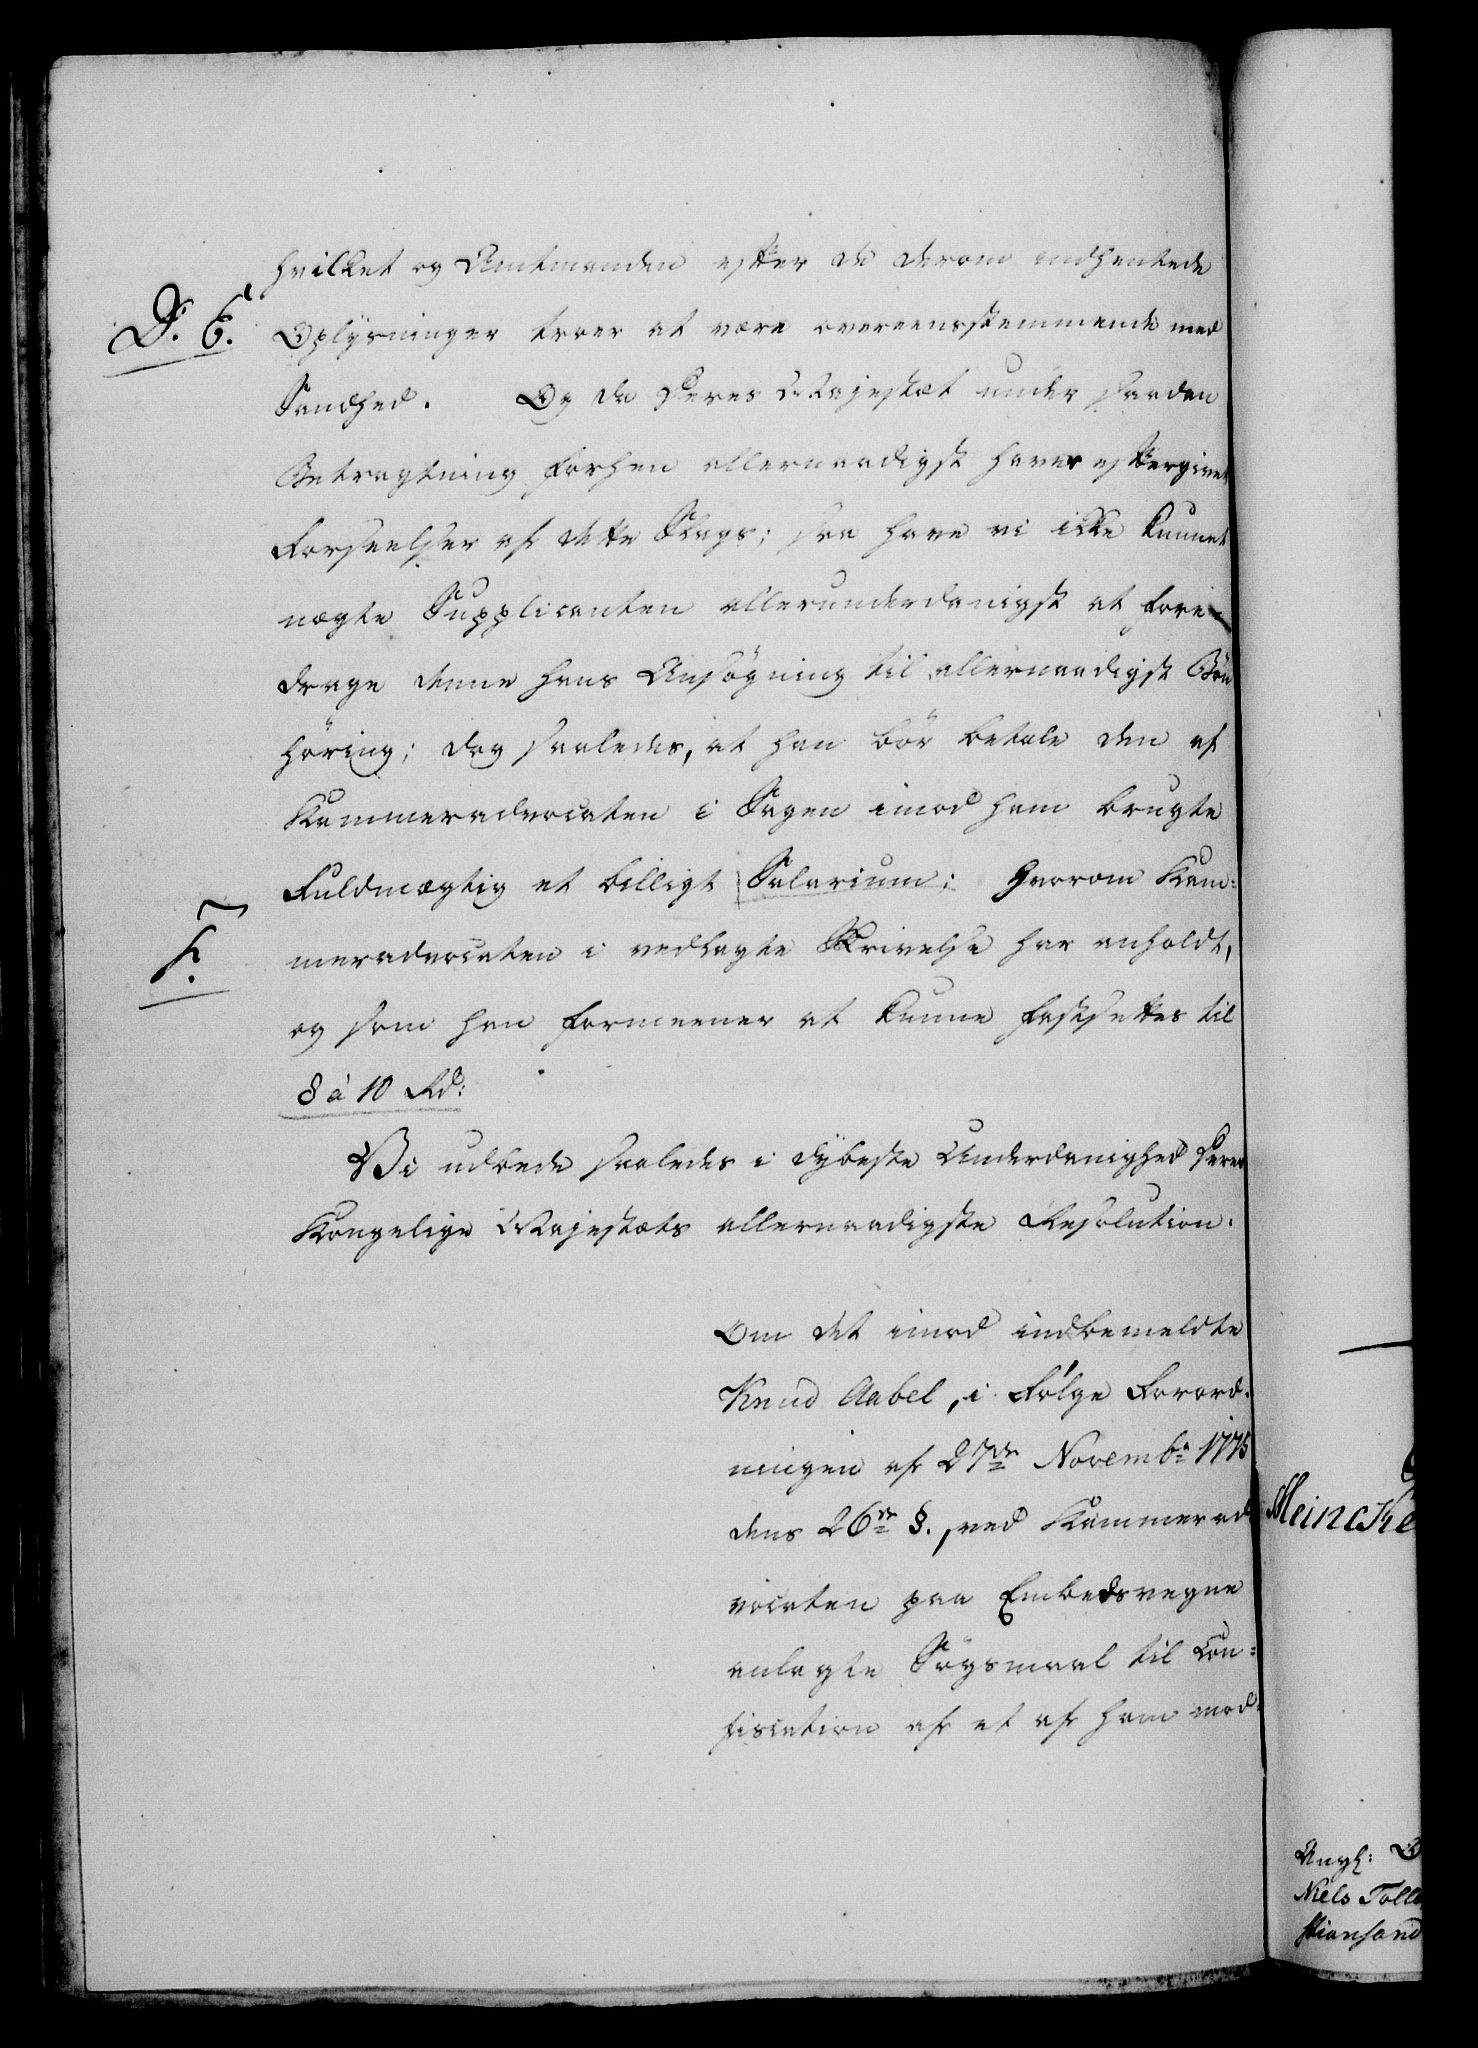 hvilket og Amtmanden efter de derom indhentede
D. E.
Oplysninger troer at være overeensstemmende med
Sandhed. Og da Deres Majestæt under saadan
Betragtning forhen allernaadigst haver eftergivet
Forseelser af dette Slags; saa have vi ikke kunnet
nægte Supplicanten allerunderdanigst at fore-
drage denne hans Ansøgning til allernaadigst Bön
höring; dog saaledes, at han bör betale den af
Kammeradvocaten i Sagen imod ham brugte
Fuldmægtig et billigt Salarium; hvorom Kam-
F.
meradvocaten i vedlagte Skrivelse har anholdt,
og som han formeener at kunne fastsættes til
8 à 10 Rd:
Vi udbede saaledes i dÿbeste Underdanighed Deres
Kongelige Majestæts allernaadigste Resolution.
Om det imod indbemeldte
Knud Aabel, i Følge Forord-
ningen af 27de Novembr 1775
dens 26de §., ved Kammerad-
vocaten paa Embedsvegne
anlagte Søgsmaal til Con-
fiscation af et af ham mod-
Meincke
Angl:
Niels Tolle
stiansand